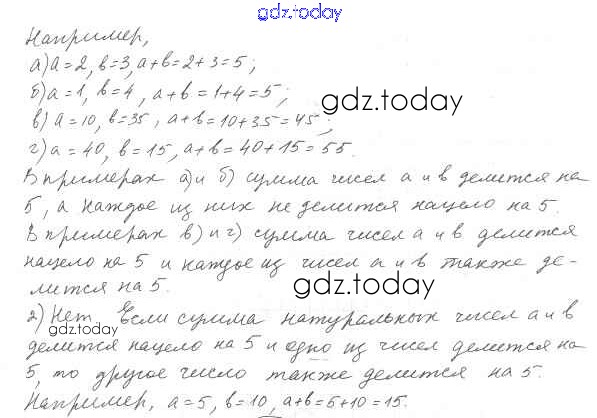 gdz.today
Например,
а) a=2, b=3, a+b=2+3=5;
б) a=1, b=4, a+b=1+4=5;
gdz.today
в) a=10, b=35, a+b=10+35=45;
г) a=40, b=15, a+b=40+15=55.
В примерах а) и б) сумма чисел a и b делится на
5, а каждое из них не делится нацело на 5.
В примерах в) и г) сумма чисел a и b делится
нацело на 5 и каждое из чисел a и b также де-
лится на 5.
gdz.today
2) Нет. Если сумма натуральных чисел a и b
gdz.today
делится нацело на 5 и одно из чисел делится на
5, то другое число также делится на 5.
Например, a=5, b=10, a+b=5+10=15.